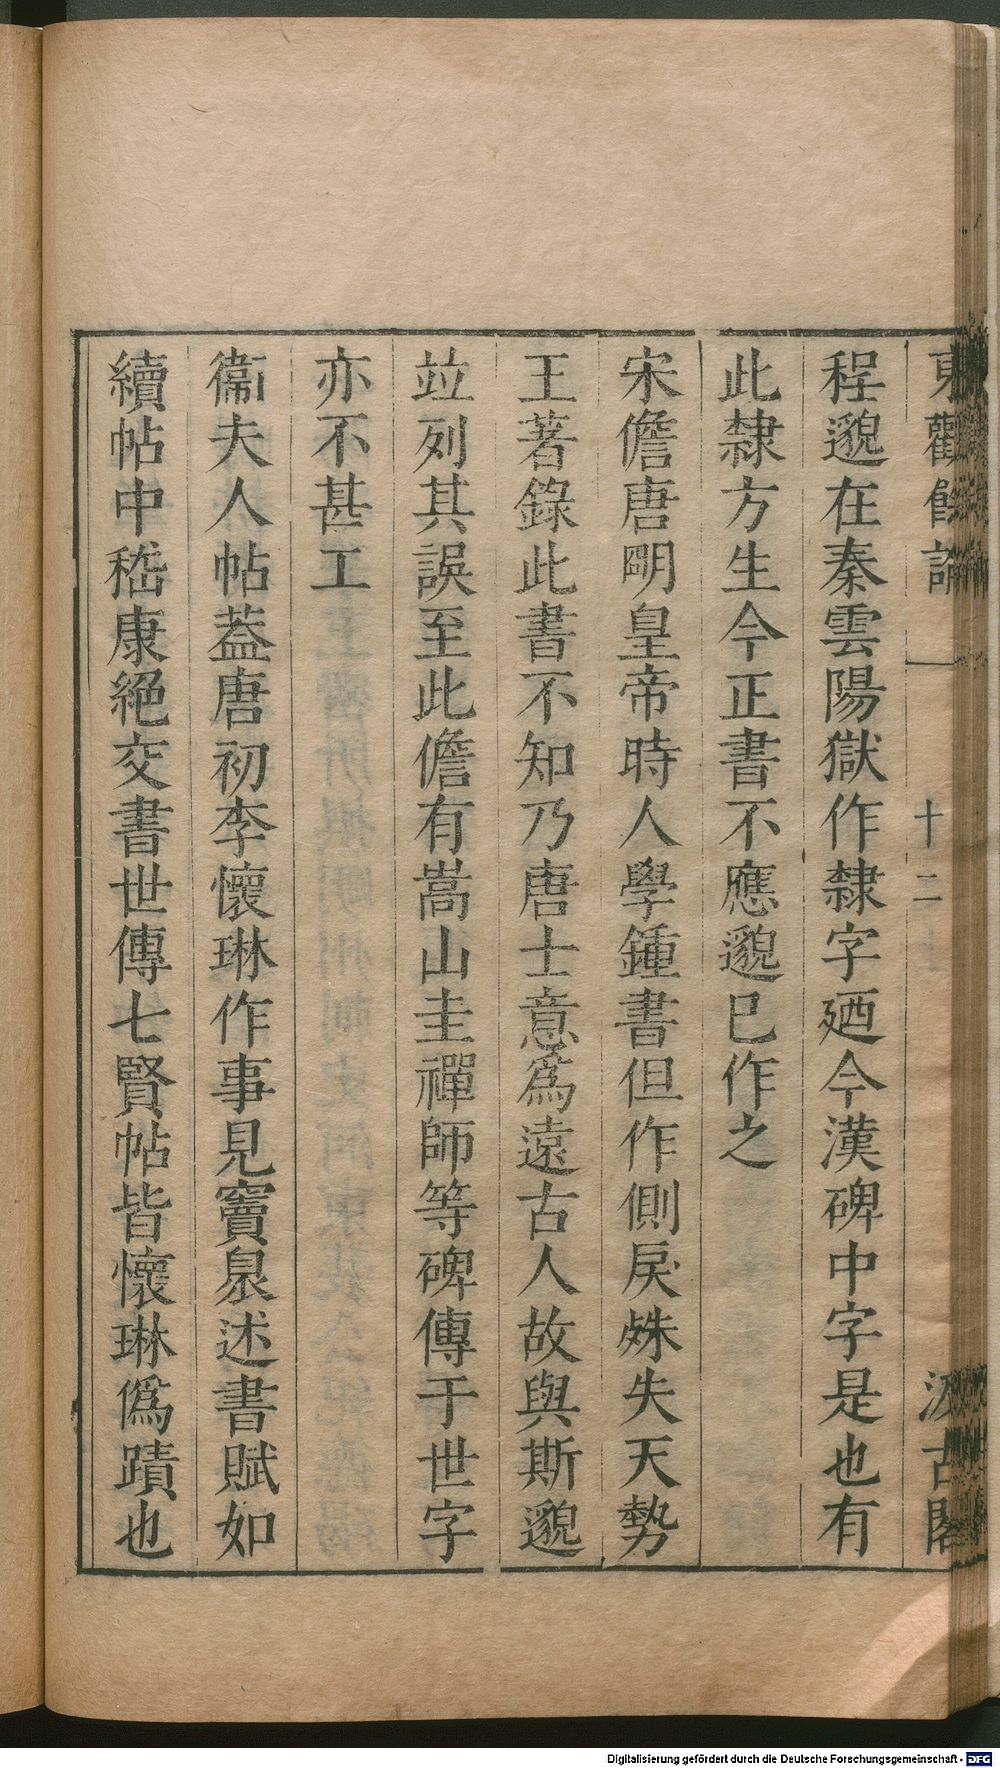 東觀餘論
十二
汲古閣
程邈在秦雲陽獄作隸字廼今漢碑中字是也有
此隸方生今正書不應邈巳作之
宋儋唐明皇帝時人學鍾書但作側戾殊失天勢
王著錄此書不知乃唐士意爲遠古人故與斯邈
竝列其誤至此儋有嵩山圭禪師等碑傳于世字
亦不甚工
衞夫人帖葢唐初李懷琳作事見竇臮述書賦如
續帖中嵇康絕交書世傳七賢帖皆懷琳僞蹟也
Digitalisierung gefördert durch die Deutsche Forschungsgemeinschaft - DFG